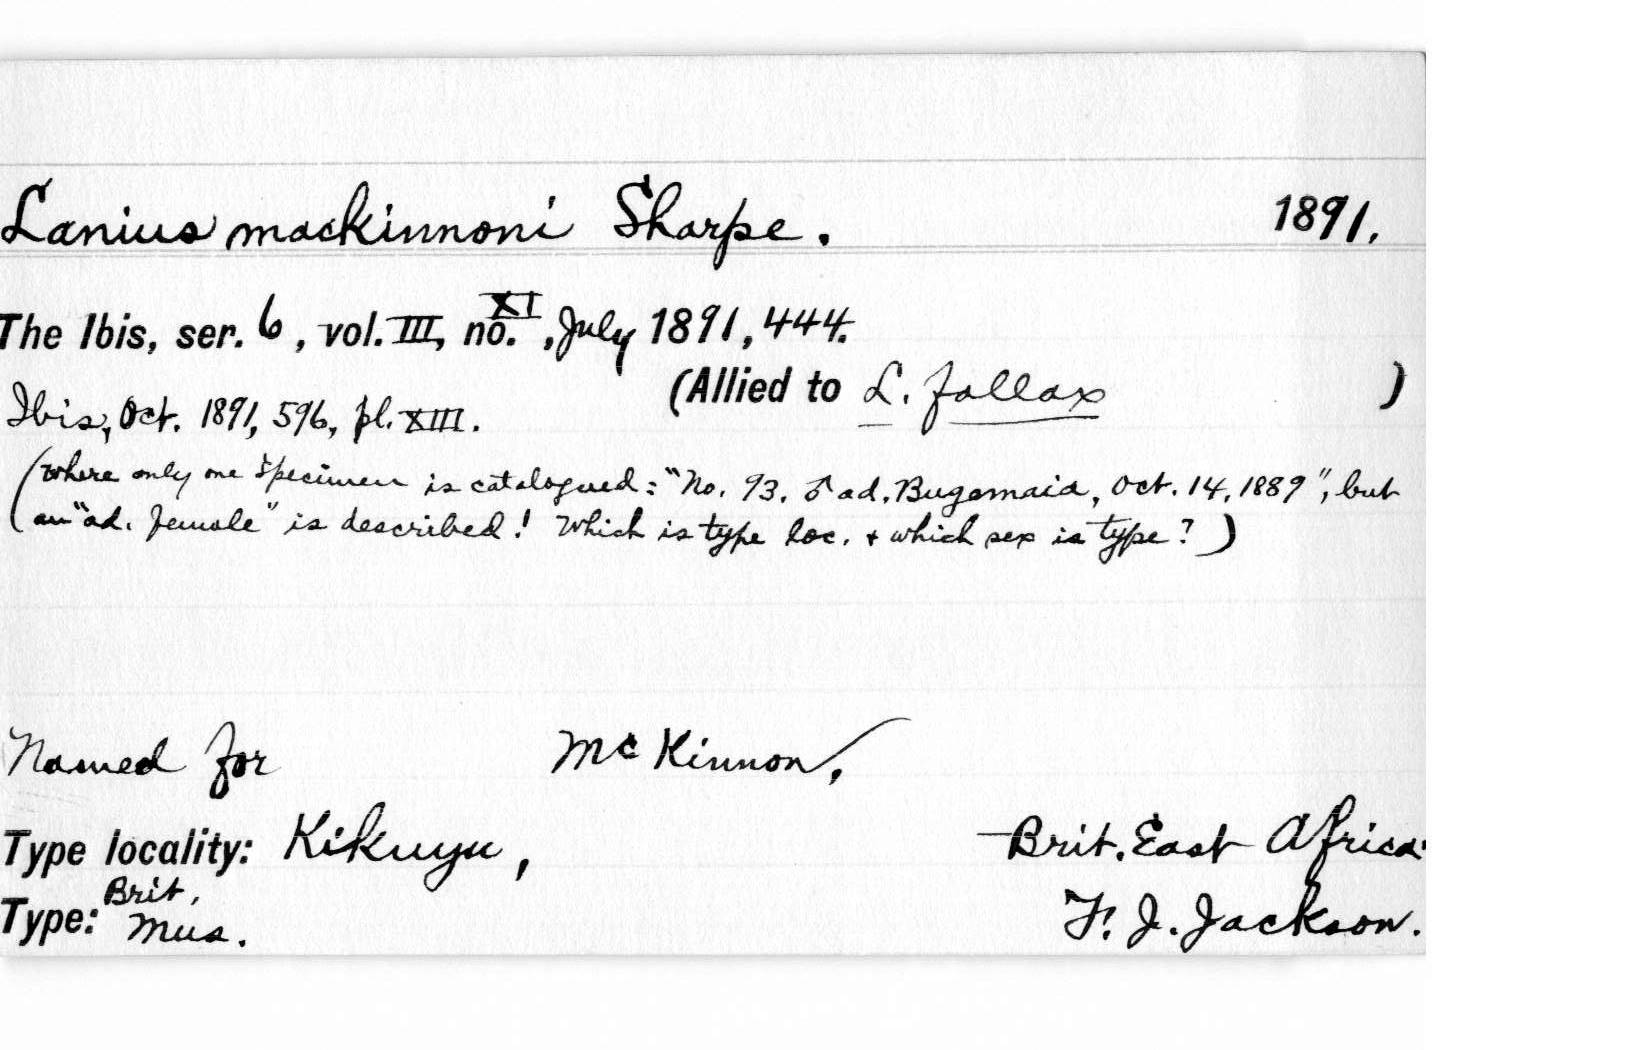 Lanius mackinnoni Sharpe. 1891.
The Ibis, ser. 6, vol. III, no. XI, July 1891, 444.
(Allied to L. fallax )
Ibis, Oct. 1891, 596, pl. XIII.
(where only one specimen is catalogued: "No. 93. ♂ ad. Bugemaia, Oct. 14, 1889", but
an "ad. female" is described! Which is type loc. + which sex is type?)
Named for Mc Kinnon.
Type locality: Kikuyu, Brit. East Africa.
Type: Brit. Mus. F. J. Jackson.